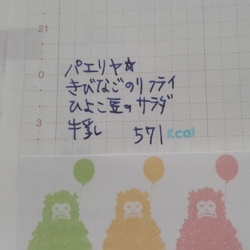 21
パエリヤ☆
きびなごのフライ
ひよこ豆のサラダ
牛乳 571 Kcal
3